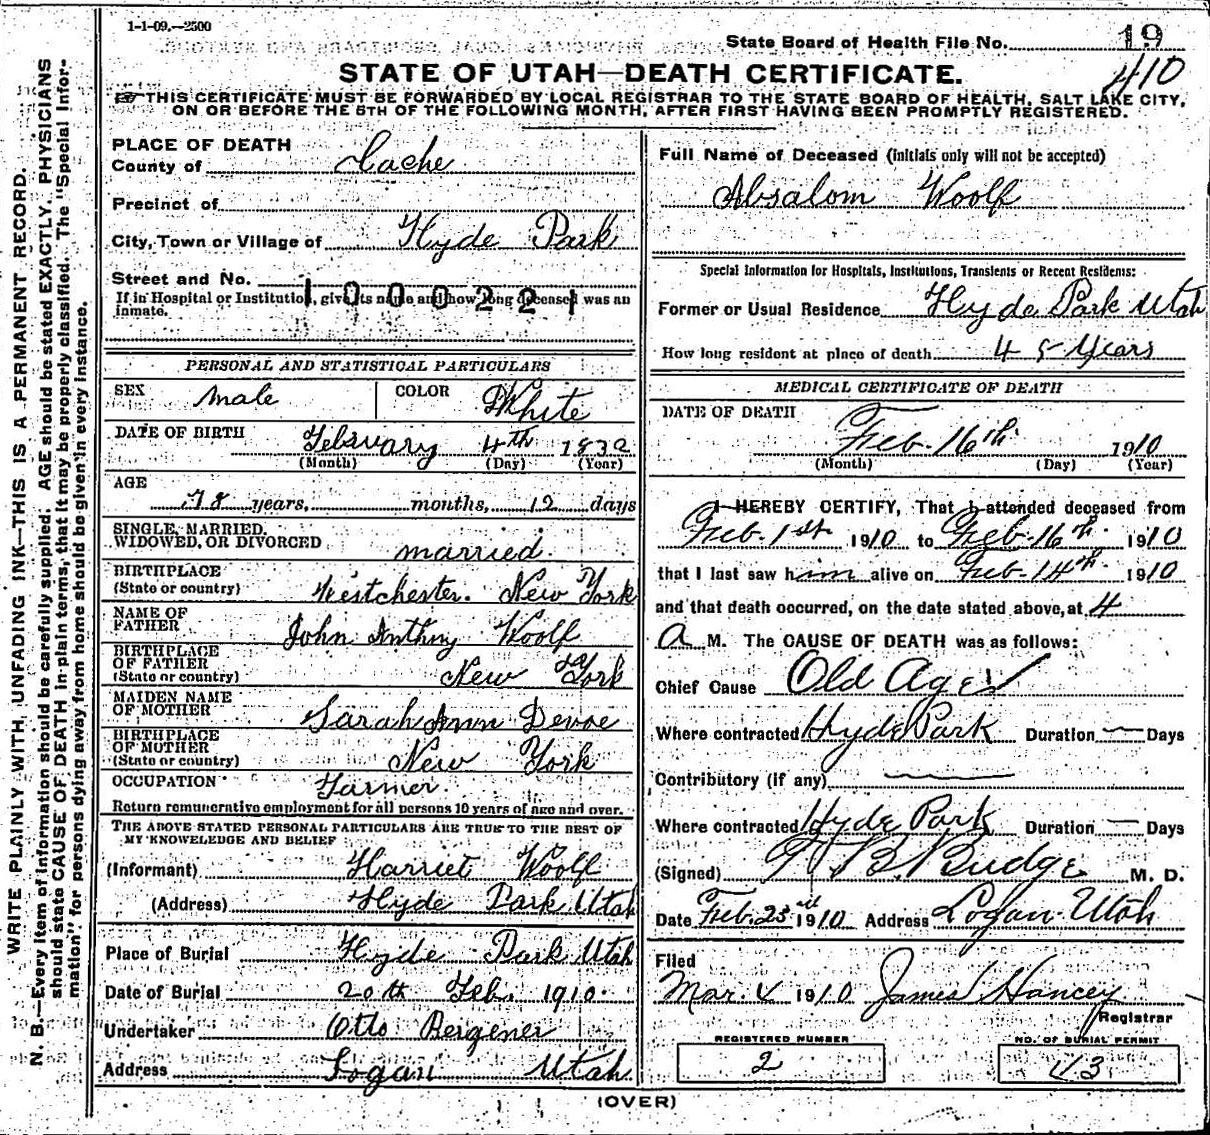 1-1-09.--2500
State Board of Health File No. 19
410
STATE OF UTAH—DEATH CERTIFICATE.
☞THIS CERTIFICATE MUST BE FORWARDED BY LOCAL REGISTRAR TO THE STATE BOARD OF HEALTH, SALT LAKE CITY,
ON OR BEFORE THE 5TH OF THE FOLLOWING MONTH, AFTER FIRST HAVING BEEN PROMPTLY REGISTERED.
WRITE PLAINLY WITH UNFADING INK—THIS IS A PERMANENT RECORD.
N. B.—Every item of information should be carefully supplied. AGE should be stated EXACTLY. PHYSICIANS
should state CAUSE OF DEATH in plain terms, that it may be properly classified. The "Special Infor-
mation" for persons dying away from home should be given in every instance.
PLACE OF DEATH
County of Cache
Precinct of
City, Town or Village of Hyde Park
Street and No.
1000221
If in Hospital or Institution, give its name and how long deceased was an
inmate.
PERSONAL AND STATISTICAL PARTICULARS
SEX male COLOR White
DATE OF BIRTH February 4th 1832
(Month) (Day) (Year)
AGE
78 years, months, 12 days
SINGLE, MARRIED,
WIDOWED, OR DIVORCED married.
BIRTHPLACE
(State or country) Westchester. New York
NAME OF
FATHER John Anthny Woolf
BIRTHPLACE
OF FATHER
(State or country) New York
MAIDEN NAME
OF MOTHER Sarah Ann Devoe
BIRTHPLACE
OF MOTHER
(State or country) New York
OCCUPATION Farmer.
Return remunerative employment for all persons 10 years of age and over.
THE ABOVE STATED PERSONAL PARTICULARS ARE TRUE TO THE BEST OF
MY KNOWLEDGE AND BELIEF
(Informant) Harriet Woolf
(Address) Hyde Park Utah
Place of Burial Hyde Park Utah
Date of Burial 20th Feb. 1910.
Undertaker Otto Bergener
Address Logan Utah.
Full Name of Deceased (initials only will not be accepted)
Absalom Woolf
Special Information for Hospitals, Institutions, Transients or Recent Residents:
Former or Usual Residence Hyde Park Utah
How long resident at place of death 45 Years
MEDICAL CERTIFICATE OF DEATH
DATE OF DEATH
Feb. 16th. 1910
(Month) (Day) (Year)
I HEREBY CERTIFY, That I attended deceased from
Feb. 1st 1910 to Feb. 16th. 1910
that I last saw him alive on Feb. 14th. 1910
and that death occurred, on the date stated above, at 4
a M. The CAUSE OF DEATH was as follows:
Chief Cause Old Age
Where contracted Hyde Park Duration — Days
Contributory (if any) —
Where contracted Hyde Park Duration — Days
(Signed) B. Budge M. D.
Date Feb. 23rd 1910 Address Logan. Utah
Filed
Mar. 4 1910 James Hancey
Registrar
REGISTERED NUMBER
2
NO. OF BURIAL PERMIT
43
(OVER)